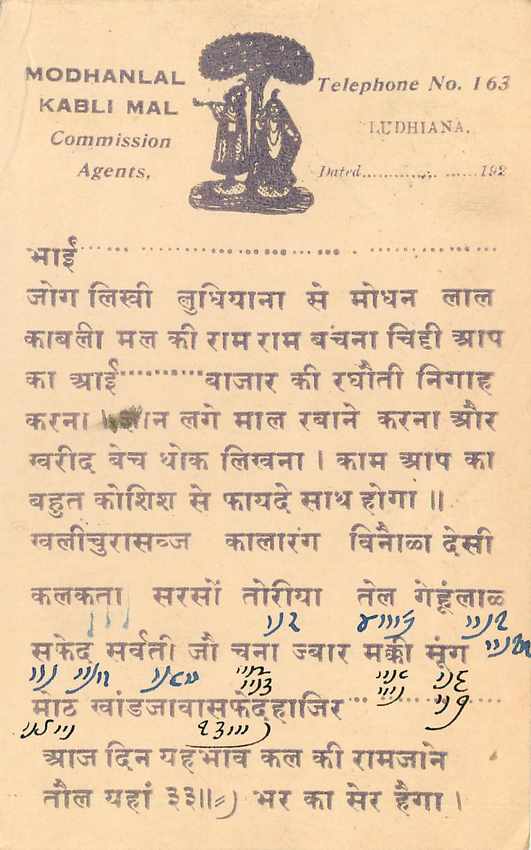 MODHANLAL
KABLI MAL
Commission
Agents,
Telephone No. 163
LUDHIANA.
Dated..................192
भाई
जोग लिखी लुधियाना से मोधन लाल
काबली मल की राम राम बंचना चिट्टी आप
का आई ............ बाजार की रघौती निगाह
करना लगे माल रबाने करना और
खरीद बेच थोक लिखना । काम आप का
बहुत कोशिश से फायदे साथ होगा ॥
खलीचुरासव्ज कालारंग विनौळा देसी
कलकता सरसों तोरीया तेल गेहूंलाळ
सफेद सर्वती जौ चना ज्वार मक्की मूंग
मोठ खांडजावासफेदहाजिर
आज दिन यह भाव कल की रामजाने
तौल यहां ३३॥=) भर का सेर हैगा ।